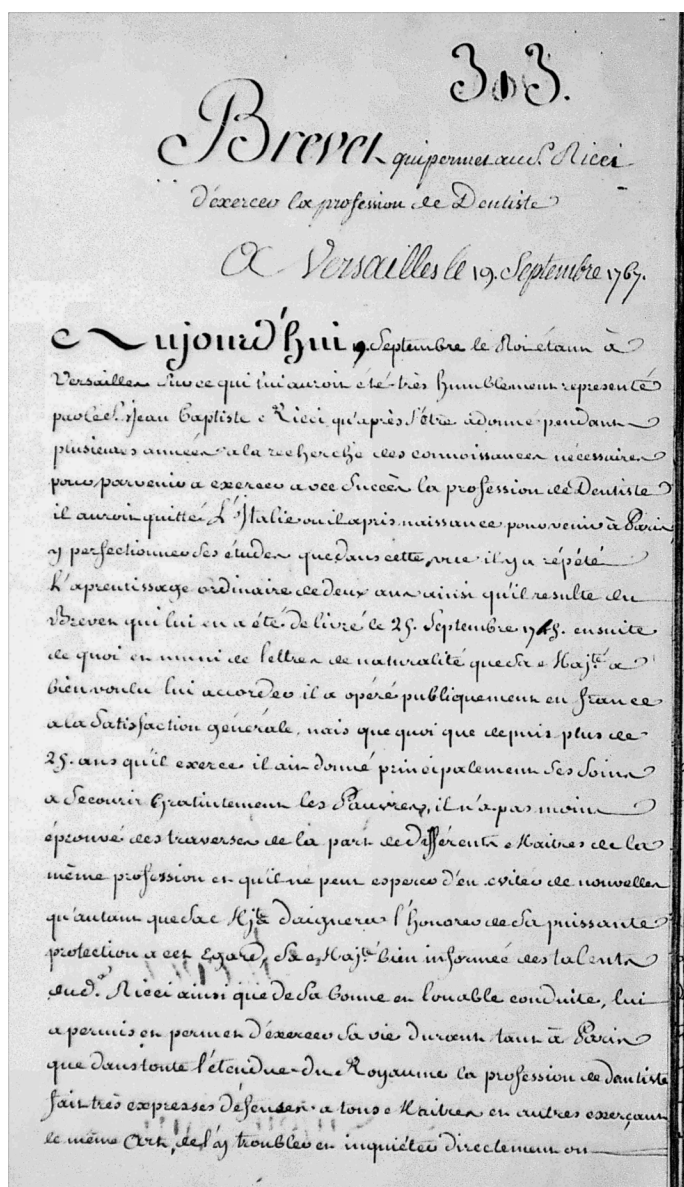 303.
Brevet qui permet au S. Ricci
d'éxercer la profession de Dentiste
A Versailles le 19. Septembre 1767.
Aujourd'hui 19. Septembre le Roi étant à
Versailles Sur ce qui lui auroit été très humblement representé
par le S. Jean Baptiste Ricci qu'après s'être adonné pendant
plusieurs années a la recherche des connoissances nécessaires
pour parvenir a exercer avec Succès la profession de Dentiste
il auroit quitté L'Italie ou il a pris naissance pour venir à Paris
y perfectionner Ses études que dans cette vue il y a répété
L'aprentissage ordinaire de deux ans ainsi qu'il resulte du
Brevet qui lui en a été delivré le 25. Septembre ensuite
de quoi et muni de lettres de naturalité que Sa Maj.té a
bien voulu lui accorder il a opéré publiquement en france
a la Satisfaction générale, mais que quoi que depuis plus de
25. ans qu'il exerce il ait donné principalement Ses Soins
a Secourir Gratuitement les Pauvres, il n'a pas moins
éprouvé des traverses de la part de différents Maitres de la
même profession et qu'il ne peut esperer d'en eviter de nouvelles
qu'autant que Sa Maj.té daignera l'honorer de Sa puissante
protection a cet Egard, Sa Maj.té bien informée des talents
dud. Ricci ainsi que de Sa bonne et louable conduite, lui
a permis et permet d'éxercer Sa vie durant tant à Paris
que dans toute l'étendue du Royaume la profession de dentiste
fait très expresses défenses a tous Maitres et autres exerçant
le même Art, de l'y troubler et inquiéter directement ou